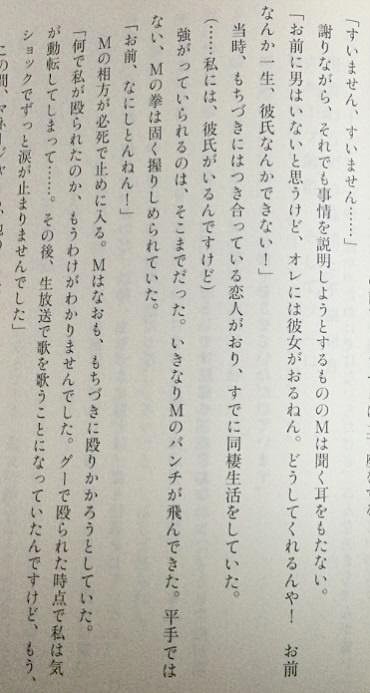 「すいません、すいません……」
謝りながら、それでも事情を説明しようとするもののMは聞く耳をもたない。
「お前に男はいないと思うけど、オレには彼女がおるねん。どうしてくれるんや！　お前
なんか一生、彼氏なんかできない！」
当時、もちづきにはつき合っている恋人がおり、すでに同棲生活をしていた。
（……私には、彼氏がいるんですけど）
強がっていられるのは、そこまでだった。いきなりMのパンチが飛んできた。平手では
ない、Mの拳は固く握りしめられていた。
「お前、なにしとんねん！」
Mの相方が必死で止めに入る。Mはなおも、もちづきに殴りかかろうとしていた。
「何で私が殴られたのか、もうわけがわかりませんでした。グーで殴られた時点で私は気
が動転してしまって……。その後、生放送で歌を歌うことになっていたんですけど、もう、
ショックでずっと涙が止まりませんでした」
この間、マネージャー